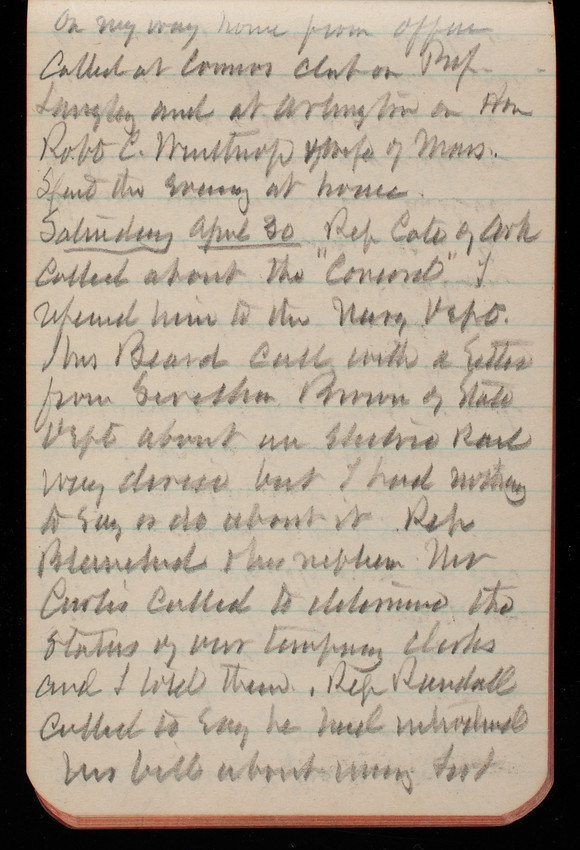 On my way home from office
Called at Cosmos Club on Prof
Langley and at Arlington on Hon
Robt C. Winthrop & wife of Mass.
Spent the evening at home.
Saturday April 30 Rep Cate of Ark
Called about the "Concord". I
referred him to the Navy Dept.
Mrs Beard call with a letter
from Sevellon Brown of State
Dept about an Electric Rail
way device but I had nothing
to say or do about it Rep
Blanchard & his nephew Mr
Curtis called to determine the
Status of our temporary clerks
and I told them. Rep Randall
called to say he had introduced
his bill about many